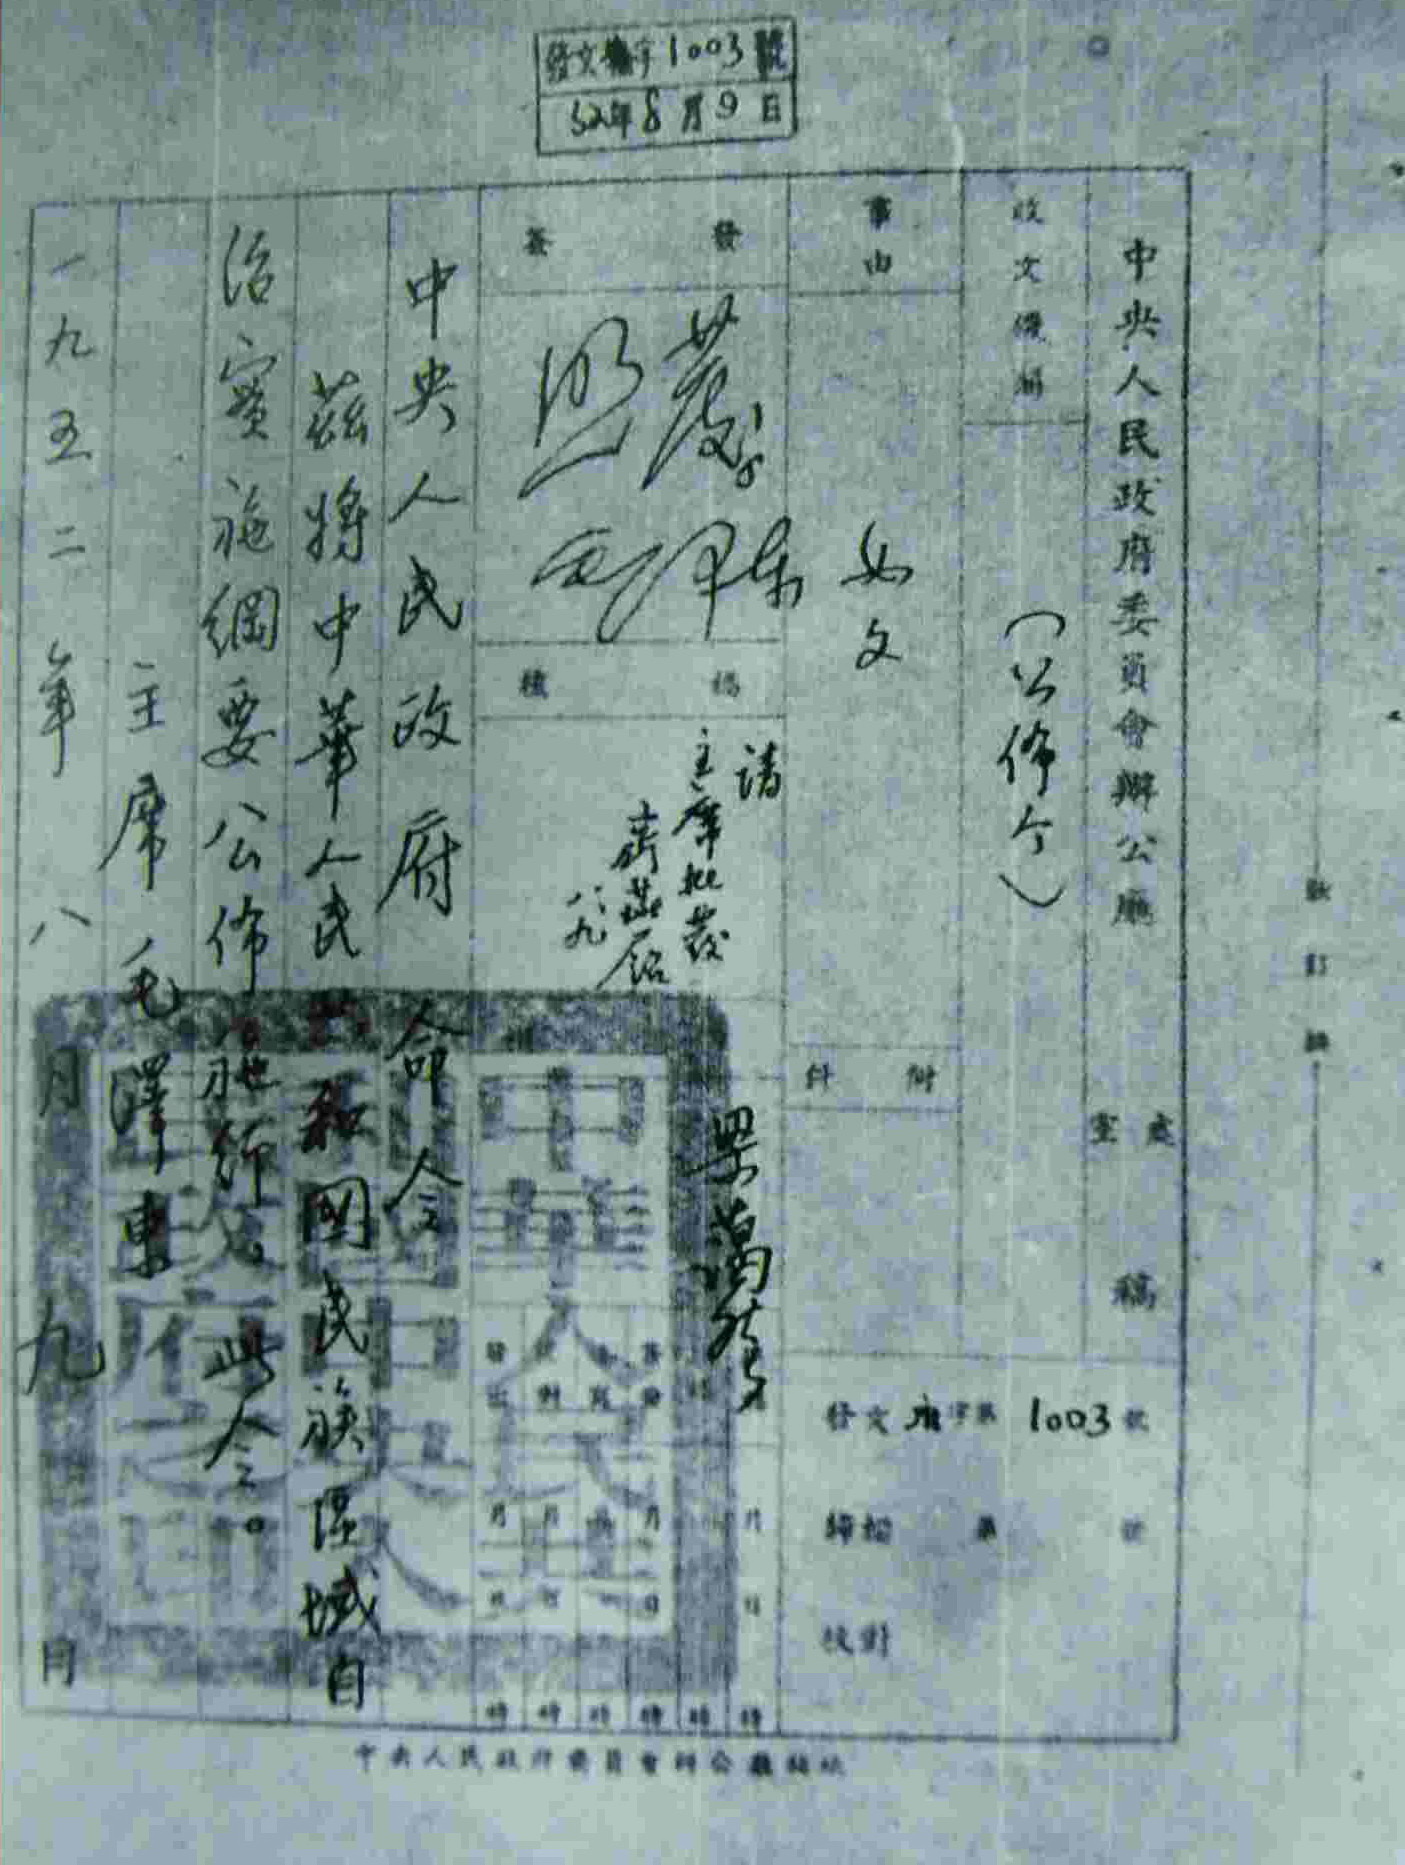 發文府字1003號
52年8月9日
中央人民政府委員會辦公廳 處室 稿
收文機關
(公佈令)
事由
如文
附件
發文府字第1003號
歸檔 第 號
校對
簽發
照發
毛澤東
擬稿
請
主席批發
齊燕銘
八、九
中央人民政府命令
茲將中華人民共和國民族區域自
治實施綱要公佈施行 此令。
主席毛澤東
一九五二年八月九日
中華人民共和國中央人民政府之印
中央人民政府委員會辦公廳
裝訂線